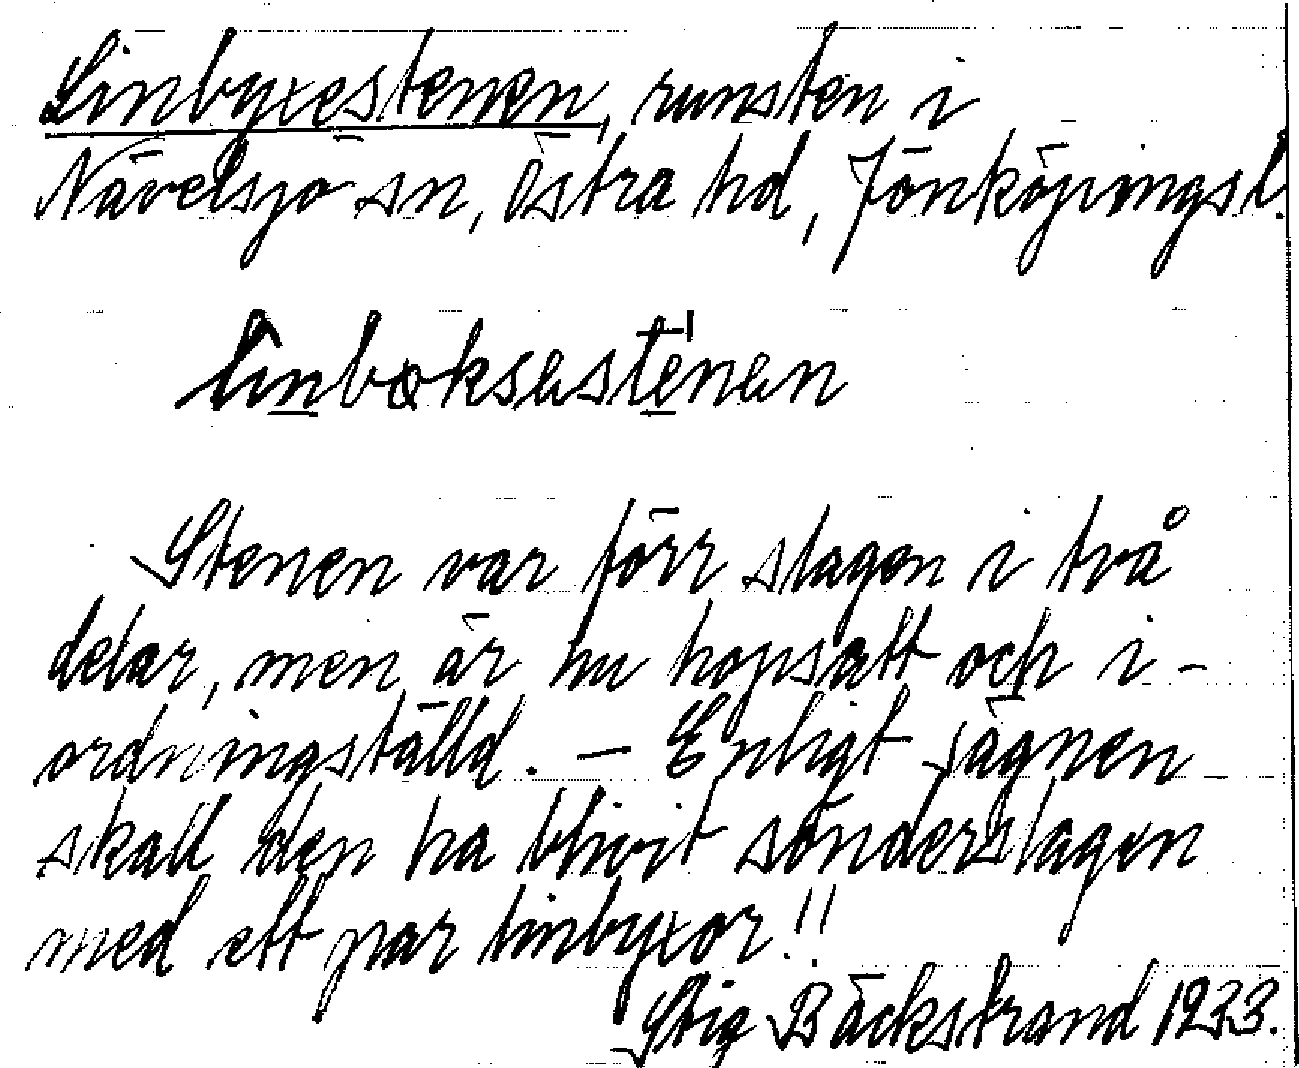 Linbyxestenen, runsten i
Nävelsjö sn, Östra hd, Jönköpingsl.
linbɷksɐste̍nɐn
Stenen var förr slagen i två
delar, men är nu hopsatt och i-
ordningställd. — Enligt sägnen
skall den ha blivit sönderslagen
med ett par linbyxor!!
Stig Bäckstrand 1933.